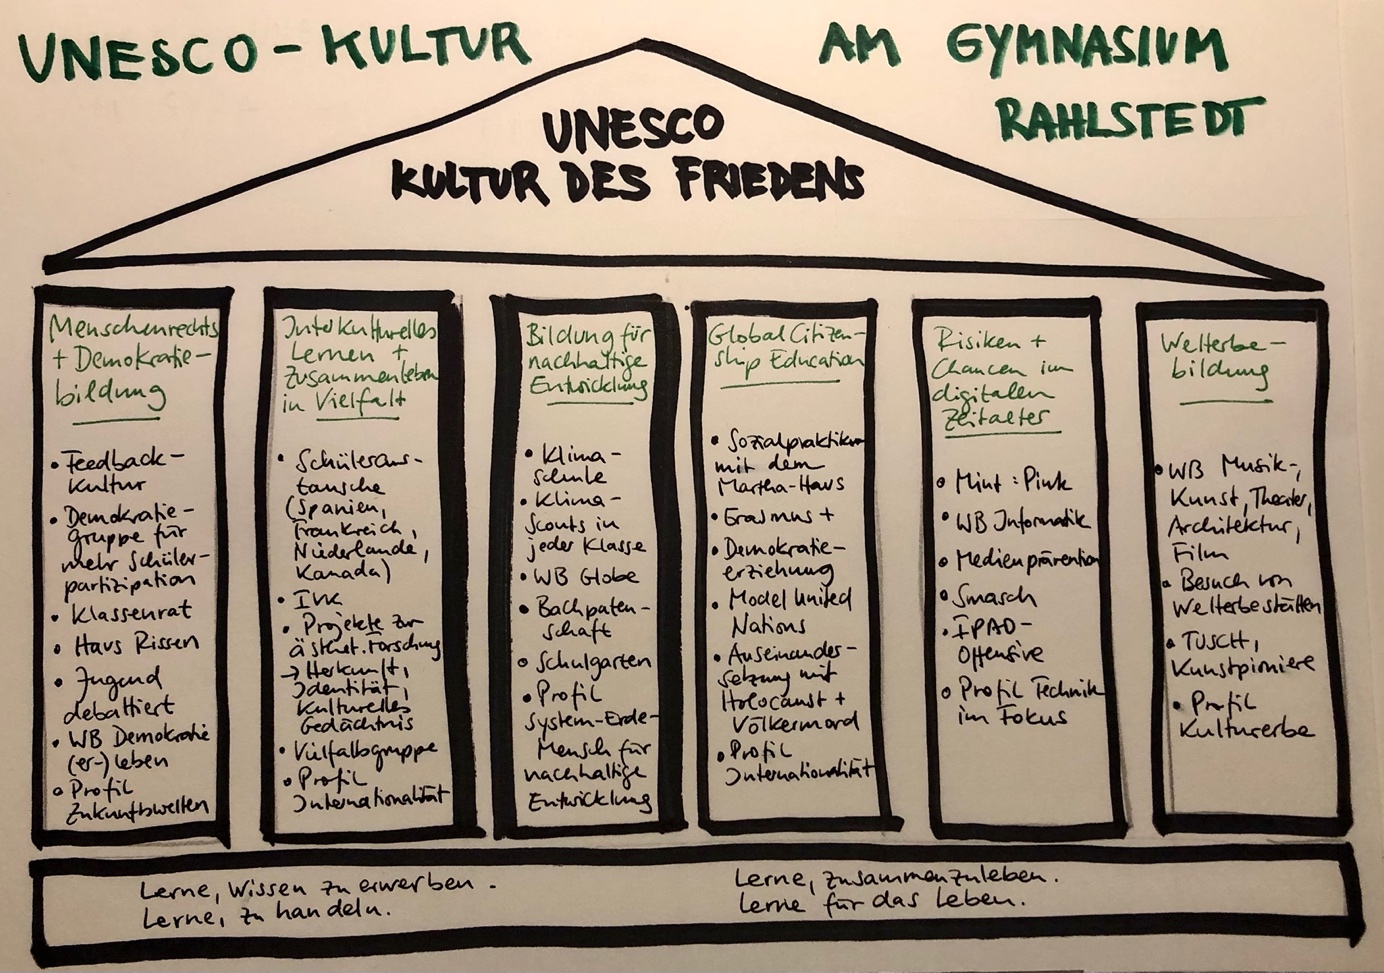 UNESCO-KULTUR AM GYMNASIUM
RAHLSTEDT
UNESCO
KULTUR DES FRIEDENS
Menschenrechts
+ Demokratie-
bildung
• Feedback-
kultur
• Demokratie-
gruppe für
mehr Schüler-
partizipation
• Klassenrat
• Haus Rissen
• Jugend
debattiert
• WB Demokratie
(er-)leben
• Profil
Zukunftswelten
Interkulturelles
Lernen +
Zusammenleben
in Vielfalt
• Schüleraus-
tausche
(Spanien,
Frankreich,
Niederlande,
Kanada)
• IVK
• Projekte zur
ästhet. Forschung
→ Herkunft,
Identität,
kulturelles
Gedächtnis
• Vielfaltsgruppe
• Profil
Internationalität
Bildung für
nachhaltige
Entwicklung
• Klima-
schule
• Klima-
scouts in
jeder Klasse
• WB Globe
• Bachpaten-
schaft
• Schulgarten
• Profil
System-Erde-
Mensch für
nachhaltige
Entwicklung
Global Citizen-
ship Education
• Sozialpraktikum
mit dem
Martha-Haus
• Erasmus +
• Demokratie-
erziehung
• Model United
Nations
• Auseinander-
setzung mit
Holocaust +
Völkermord
• Profil
Internationalität
Risiken +
Chancen im
digitalen
Zeitalter
• Mint : Pink
• WB Informatik
• Medienprävention
• Smasch
• IPAD-
Offensive
• Profil Technik
im Fokus
Welterbe-
bildung
• WB Musik-,
Kunst, Theater,
Architektur,
Film
• Besuch von
Welterbestätten
• TUSCH,
Kunstpioniere
• Profil
Kulturerbe
Lerne, Wissen zu erwerben.
Lerne, zu handeln.
Lerne, zusammenzuleben.
Lerne für das Leben.